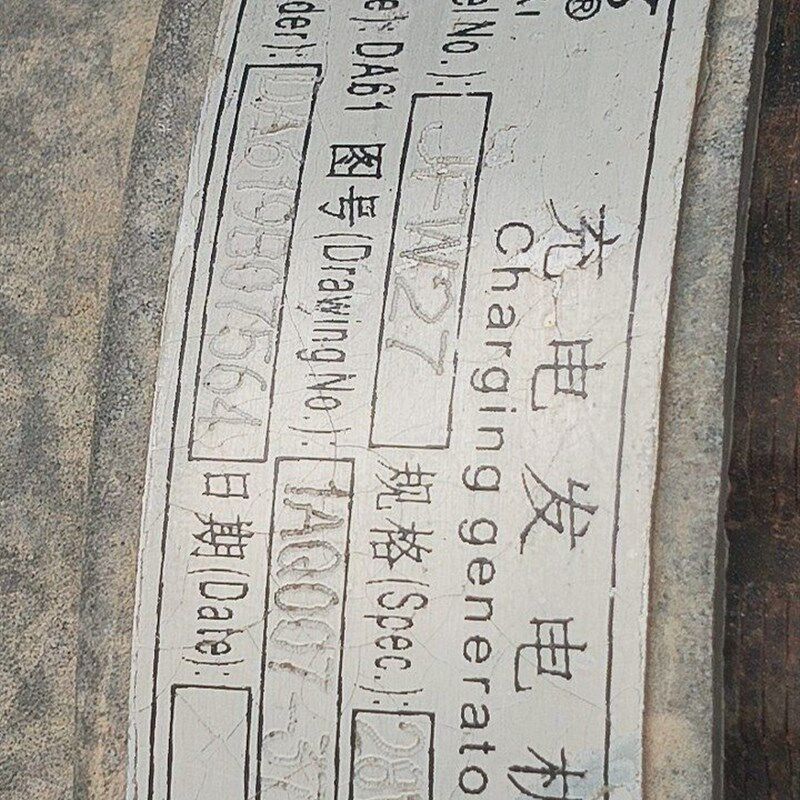 ®
充电发电机
Charging generato
el No.): JFW27 规格(Spec.): 28
e): DA61 图号(Drawing No.): 1AQ007-3
der): DA619B07564 日期(Date):